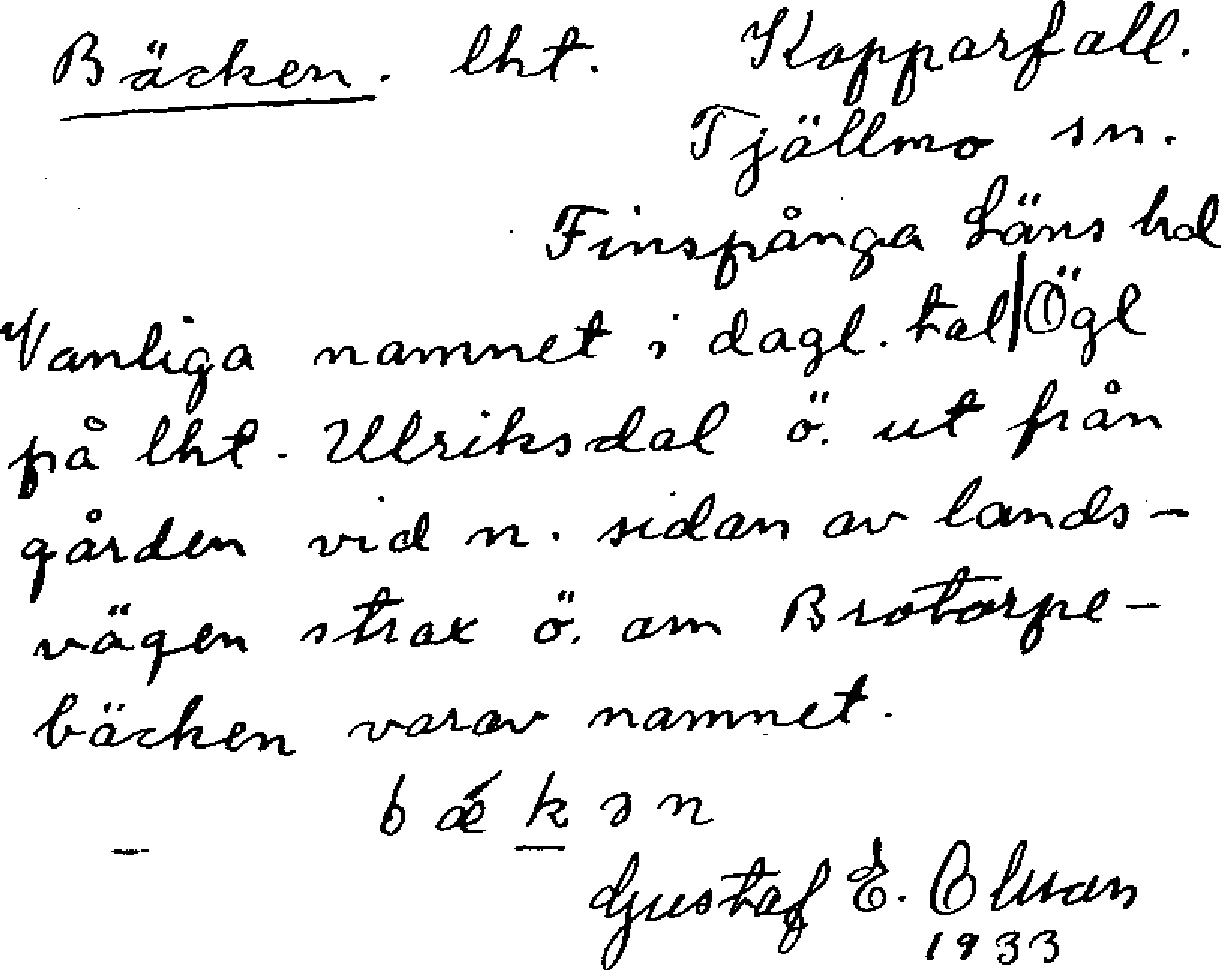 Bäcken. lht. Kopparfall.
Tjällmo sn.
Finspånga Läns hd
Vanliga namnet i dagl. tal Ögl
på lht. Ulriksdal ö. ut från
gården vid n. sidan av lands-
vägen strax ö. om Brotorpe-
bäcken varav namnet.
bǽkən
Gustaf E. Olsson
1933